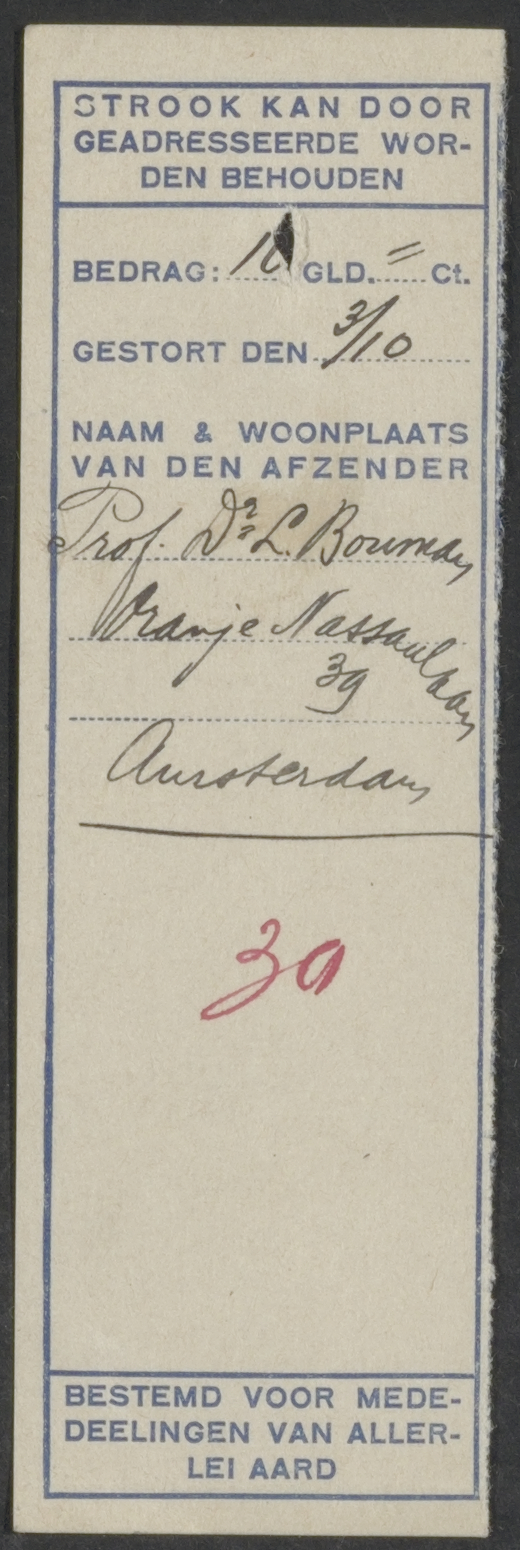 STROOK KAN DOOR
GEADRESSEERDE WOR-
DEN BEHOUDEN
BEDRAG: 10 GLD. = Ct.
GESTORT DEN 3/10
NAAM & WOONPLAATS
VAN DEN AFZENDER
Prof. Dr. L. Bouman
Oranje Nassaulaan
39
Amsterdam
BESTEMD VOOR MEDE-
DEELINGEN VAN ALLER-
LEI AARD